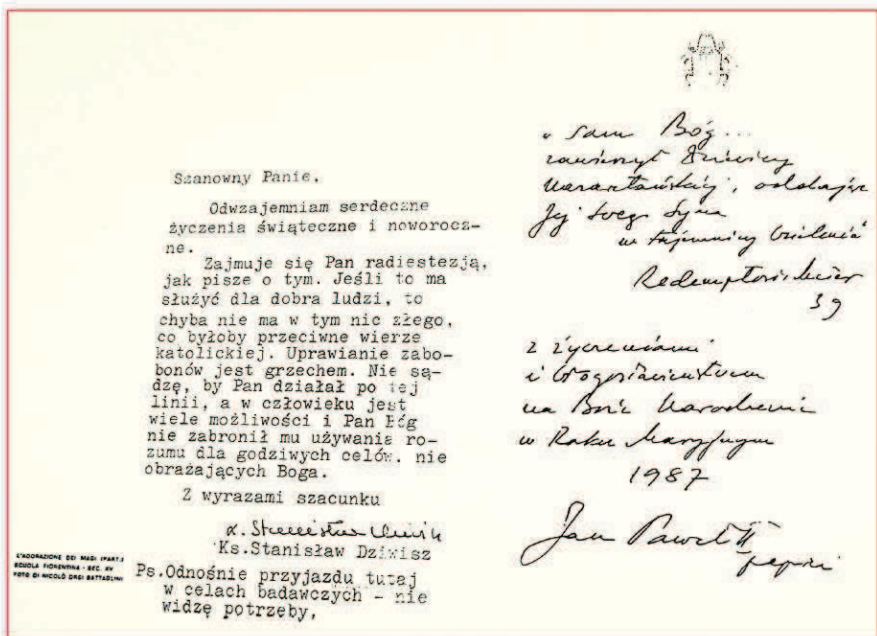 Szanowny Panie.
Odwzajemniam serdeczne
życzenia świąteczne i noworocz-
ne.
Zajmuje się Pan radiestezją,
jak pisze o tym. Jeśli to ma
służyć dla dobra ludzi, to
chyba nie ma w tym nic złego,
co byłoby przeciwne wierze
katolickiej. Uprawianie zabo-
bonów jest grzechem. Nie są-
dzę, by Pan działał po tej
linii, a w człowieku jest
wiele możliwości i Pan Bóg
nie zabronił mu używania ro-
zumu dla godziwych celów. nie
obrażających Boga.
Z wyrazami szacunku
Ks.Stanisław Dziwisz
Ps.Odnośnie przyjazdu tutaj
w celach badawczych - nie
widzę potrzeby,
L'ADORAZIONE DEI MAGI (PART.)
SCUOLA FIORENTINA - SEC. XV
FOTO DI NICOLÒ ORSI BATTAGLINI
„Sam Bóg...
zawierzył Dziewicy
Nazaretańskiej, oddając
Jej swego Syna
w tajemnicy Wcielenia"
Redemptoris Mater
39
z życzeniami
i błogosławieństwem
na Boże Narodzenie
w Roku Maryjnym
1987
Jan Paweł II
papież